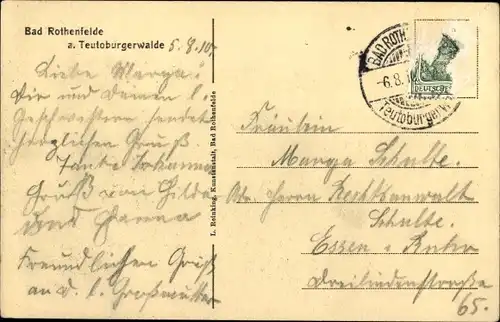 Bad Rothenfelde
a. Teutoburgerwalde 5.8.10.
Liebe Marga!
Dir und Deinen l.
Geschwistern sendet
herzlichen Gruß
Tante Johanna
Gruß von Hilde
und Hanna
Freundlichen Gruß
an d. l. Großmutter
L. Reinking, Kunstanstalt, Bad Rothenfelde
BAD ROTH
-6.8.1
Teutoburger
DEUTSCHES
Fräulein
Marga Schulte.
Adr. Herrn Rechtsanwalt
Schulte.
Essen a. Ruhr
Dreilindenstraße
65.